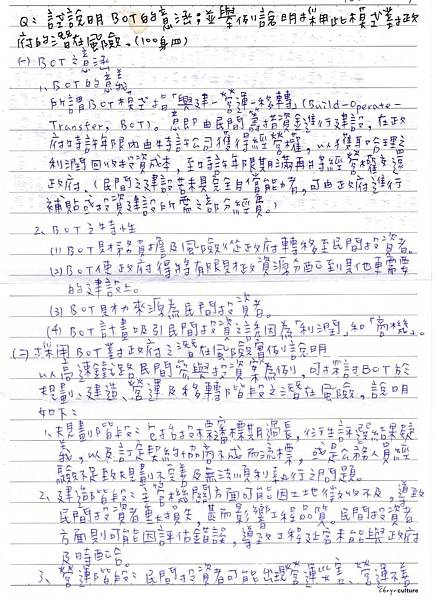 Q：試說明BOT的意涵；並舉例說明採用此模式對政
府的潛在風險。(100身四)
(一) BOT之意涵
1. BOT的意義
所謂BOT模式指「興建-營運-移轉」(Build-Operate-
Transfer, BOT)。意即由民間籌措資金進行建設，在政
府特許年限內由特許公司獲得經營權，以獲取合理之
利潤回收投資成本，至特許年限期滿再將經營權交還
政府。(民間之建設若未具完全自償能力者，可由政府進行
補貼或投資建設所需之部分經費。)
2. BOT之特性
(1) BOT財務負擔及風險從政府轉移至民間投資者。
(2) BOT使政府得將有限財政資源分配到其他更需要
的建設上。
(3) BOT財力來源為民間投資者。
(4) BOT計畫吸引民間投資之誘因為「利潤」和「商機」。
(二) 採用BOT對政府之潛在風險實例說明
以高速鐵路民間參與投資案為例，可探討BOT於
規劃、建造、營運及移轉階段之潛在風險，說明
如下：
1. 規劃階段：包括投票審標期過長，衍生評選結果疑
義，以及訂定契約協商不成而流標，或是公務人員經
驗不足致規劃不完善及無法順利執行之問題。
2. 建造階段：主管機關方面可能因土地徵收不及，導致
民間投資者重大損失，甚而影響工程品質。民間投資者
方面則可能因評估錯誤，導致工程延宕未能與政府
及時配合。
3. 營運階段：民間投資者可能出現營運災害、營運不善
culture